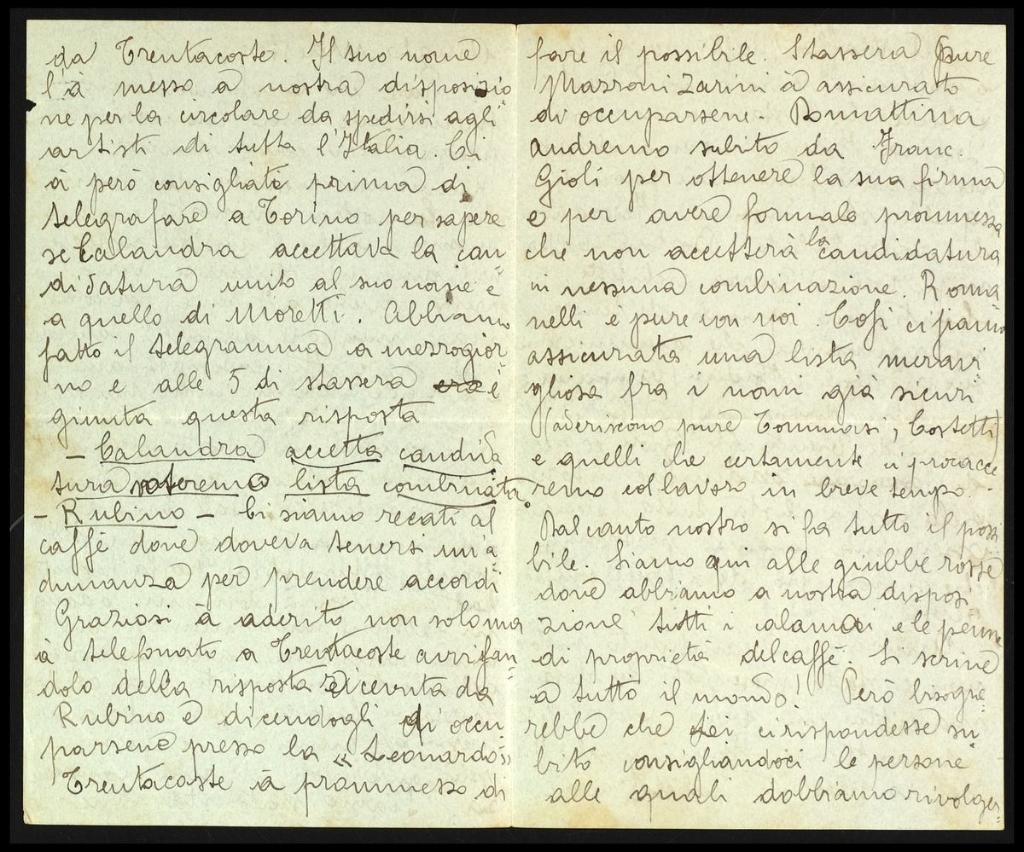 da Trentacoste. Il suo nome
l'à messo a nostra disposizio
ne per la circolare da spedirsi agli
artisti di tutta l'Italia. Ci
à però consigliato prima di
telegrafare a Torino per sapere
se Calandra accettava la can
didatura unito al suo nome e
a quello di Moretti. Abbiamo
fatto il telegramma a mezzogior
no e alle 5 di stassera era è
giunta questa risposta
- Calandra accetta candida
tura voteremo lista combinata
- Rubino - Ci siamo recati al
caffè dove doveva tenersi un'a
dunanza per prendere accordi
Graziosi à aderito non solo ma
à telefonato a Trentacoste avvisan
dolo della risposta ricevuta da
Rubino e dicendogli di occu
parsene presso la « Leonardo »
Trentacoste à prommesso di
fare il possibile. Stassera pure
Mazzoni Zarini à assicurato
di occuparsene. Domattina
andremo subito da Franc.
Gioli per ottenere la sua firma
e per avere formale prommessa
che non accetterà la candidatura
in nessuna combinazione. Roma
nelli è pure con noi. Così ci siamo
assicurata una lista meravi
gliosa fra i nomi già sicuri
(aderiscono pure Tommasi, Costetti)
e quelli che certamente ci procacce
remo col lavoro in breve tempo.
Dal canto nostro si fa tutto il possi
bile. Siamo qui alle giubbe rosse
dove abbiamo a nostra disposi
zione tutti i calamai e le penne
di proprietà del caffè. Si scrive
a tutto il mondo! Però bisogne
rebbe che Lei ci rispondesse su
bito consigliandoci le persone
alle quali dobbiamo rivolger=